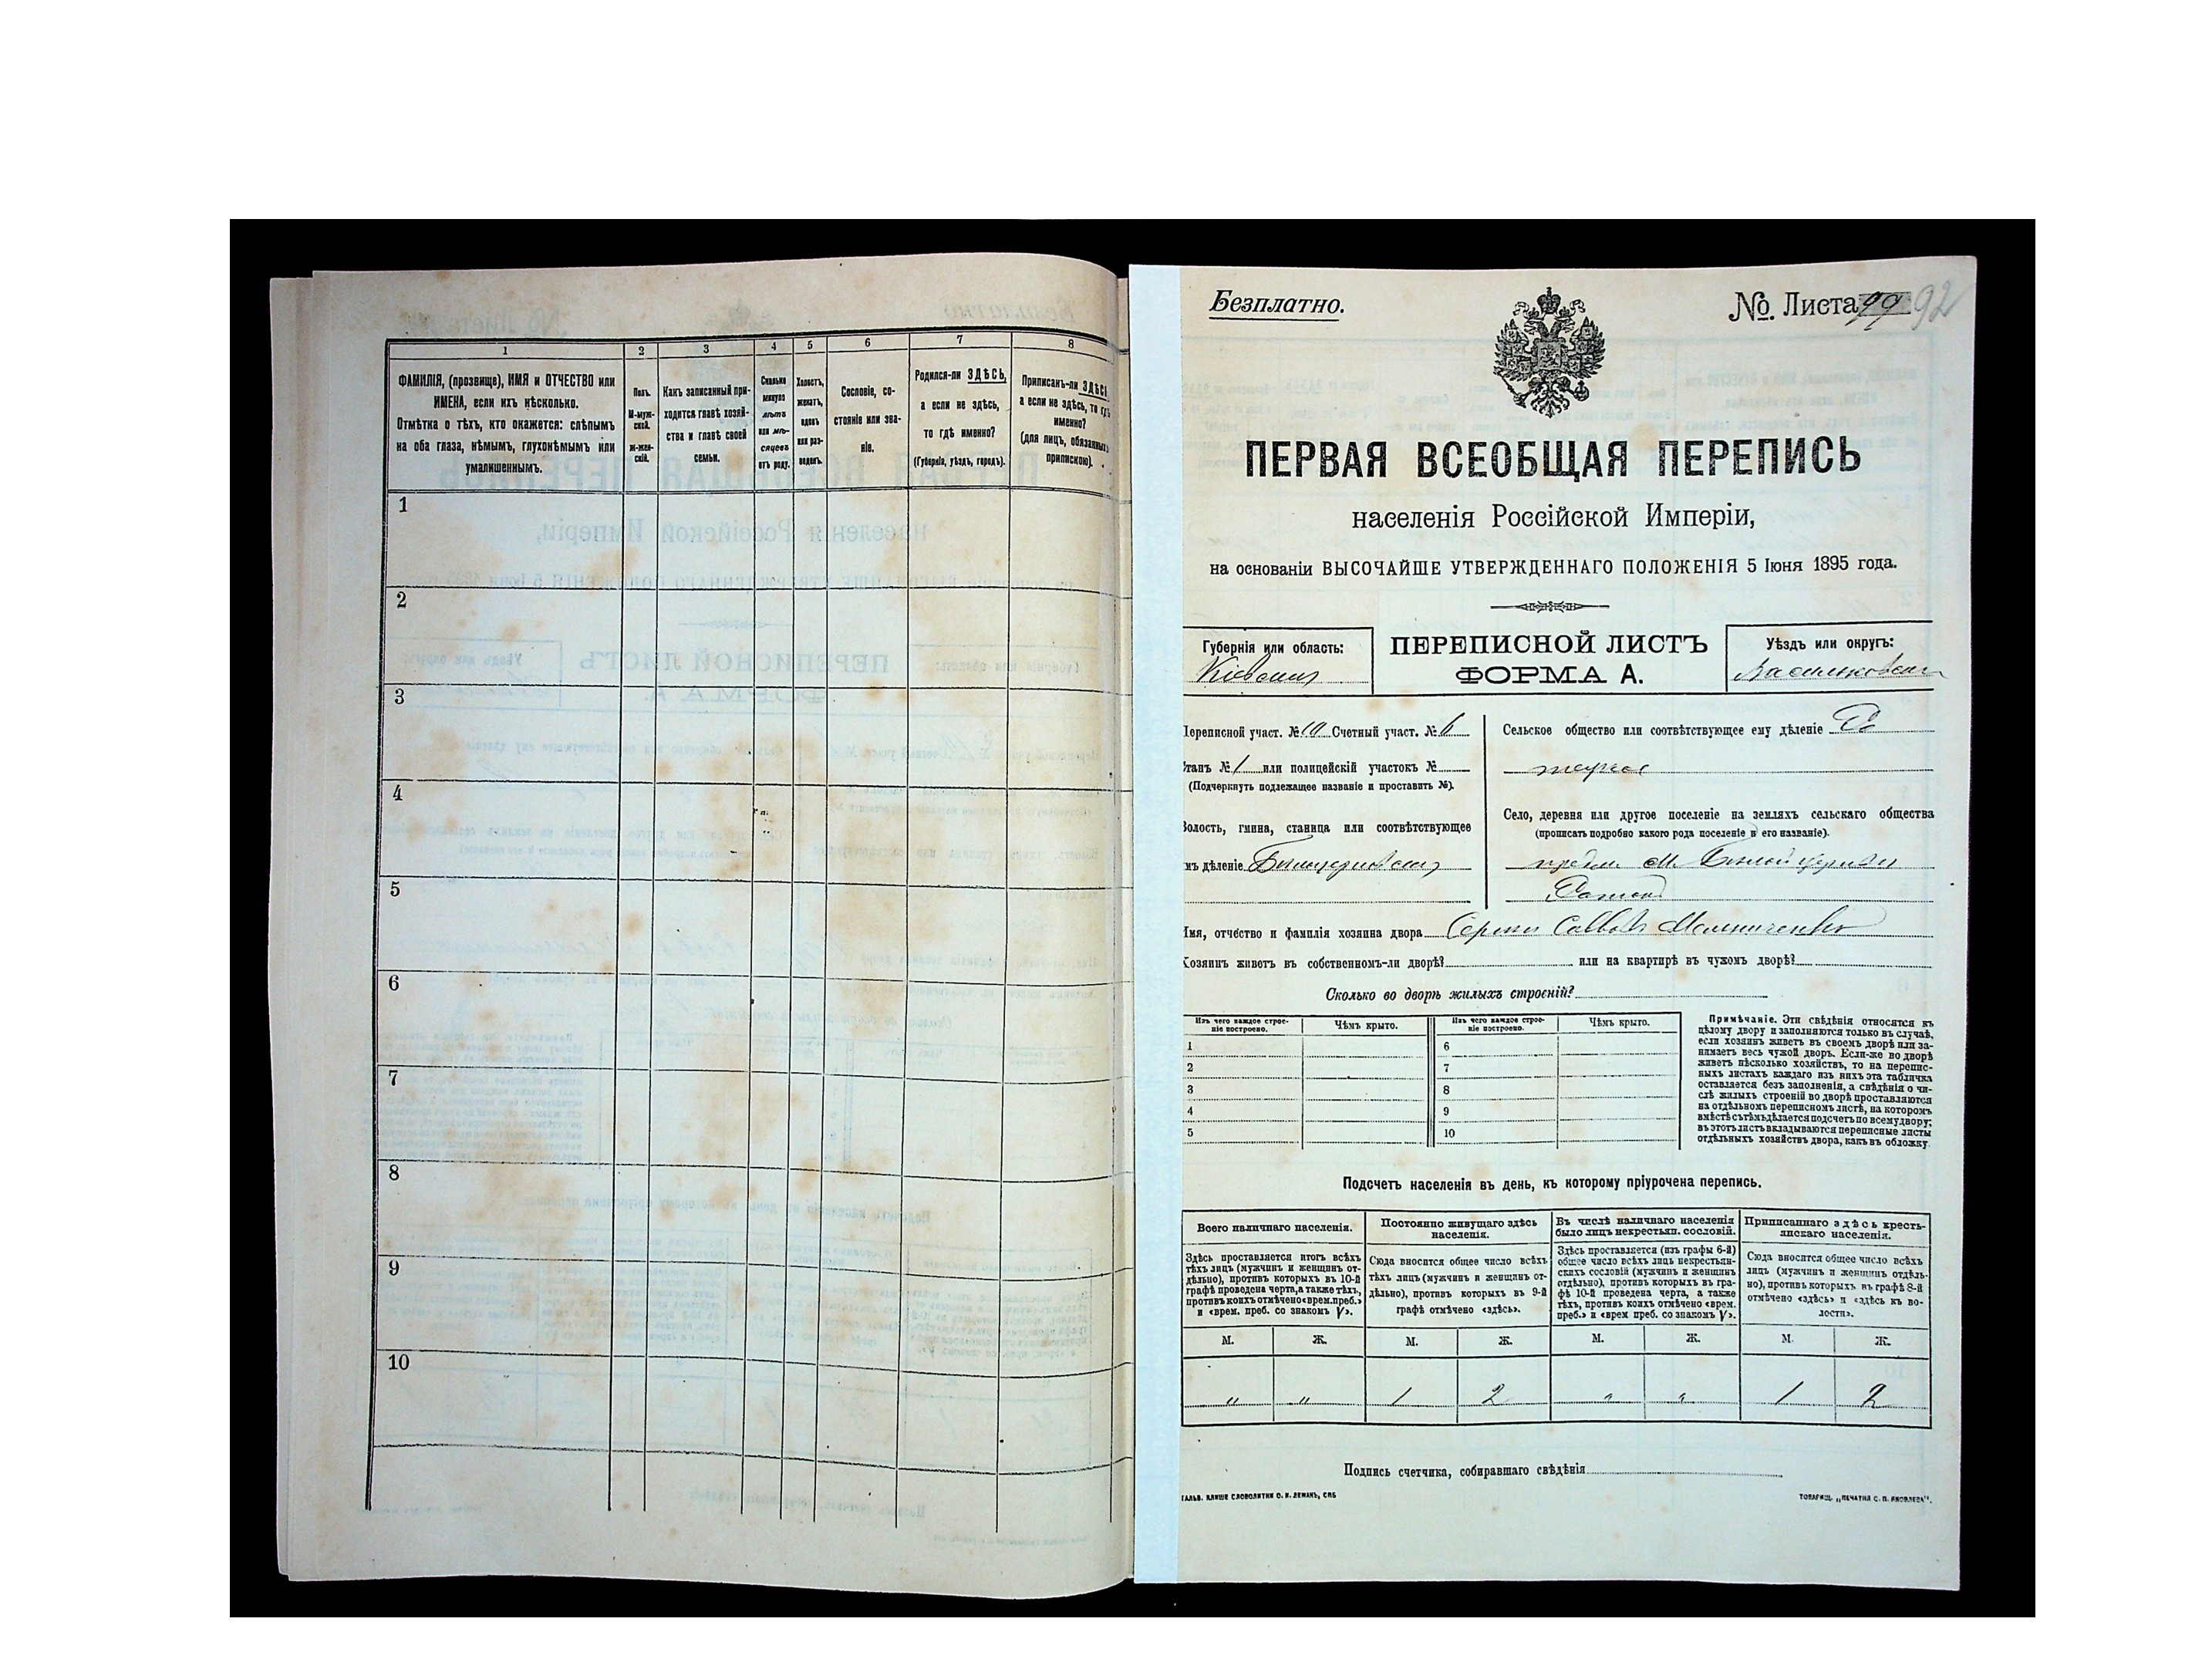 1 2 3 4 5 6 7 8
ФАМИЛІЯ, (прозвище), ИМЯ и ОТЧЕСТВО или
ИМЕНА, если ихъ нѣсколько.
Отмѣтка о тѣхъ, кто окажется: слѣпымъ
на оба глаза, нѣмымъ, глухонѣмымъ или
умалишеннымъ.
Полъ.
М-муж-
ской.
ж-жен-
скій.
Какъ записанный при-
ходится главѣ хозяй-
ства и главѣ своей
семьи.
Сколько
минуло
лѣтъ
или мѣ-
сяцевъ
отъ роду.
Холостъ,
женатъ,
вдовъ
или раз-
веденъ.
Сословіе, со-
стояніе или зва-
ніе.
Родился-ли ЗДѢСЬ,
а если не здѣсь,
то гдѣ именно?
(Губернія, уѣздъ, городъ).
Приписанъ-ли ЗДѢСЬ,
а если не здѣсь, то гдѣ
именно?
(для лицъ, обязанныхъ
припискою).
1
2
3
4
5
6
7
8
9
10
Безплатно.
№. Листа 99 92
ПЕРВАЯ ВСЕОБЩАЯ ПЕРЕПИСЬ
населенія Россійской Имперіи,
на основаніи ВЫСОЧАЙШЕ УТВЕРЖДЕННАГО ПОЛОЖЕНІЯ 5 Іюня 1895 года.
Губернія или область:
Кіевская
ПЕРЕПИСНОЙ ЛИСТЪ
ФОРМА А.
Уѣздъ или округъ:
Васильковск
Переписной участ. № 10 Счетный участ. № 6
Станъ № 1 или полицейскій участокъ №
(Подчеркнуть подлежащее названіе и проставить №).
Волость, гмина, станица или соотвѣтствующее
имъ дѣленіе Бѣлоцерковская
Сельское общество или соотвѣтствующее ему дѣленіе Ро
Село, деревня или другое поселеніе на земляхъ сельскаго общества
(прописать подробно какого рода поселеніе и его названіе).
предм. м. Бѣлой церкви
Имя, отчество и фамилія хозяина двора Сергій Саввовъ Мельниченко
Хозяинъ живетъ въ собственномъ-ли дворѣ? или на квартирѣ въ чужомъ дворѣ?
Сколько во дворѣ жилыхъ строеній?
Изъ чего каждое строе-
ніе построено.
Чѣмъ крыто.
Изъ чего каждое строе-
ніе построено.
Чѣмъ крыто.
1 6
2 7
3 8
4 9
5 10
Примѣчаніе. Эти свѣдѣнія относятся къ
цѣлому двору и заполняются только въ случаѣ,
если хозяинъ живетъ въ своемъ дворѣ или за-
нимаетъ весь чужой дворъ. Если-же во дворѣ
живетъ нѣсколько хозяйствъ, то на перепис-
ныхъ листахъ каждаго изъ нихъ эта табличка
оставляется безъ заполненія, а свѣдѣнія о чи-
слѣ жилыхъ строеній во дворѣ проставляются
на отдѣльномъ переписномъ листѣ, на которомъ
вмѣстѣ съ тѣмъ дѣлается подсчетъ по всему двору;
въ этотъ листъ вкладываются переписные листы
отдѣльныхъ хозяйствъ двора, какъ въ обложку.
Подсчетъ населенія въ день, къ которому пріурочена перепись.
Всего наличнаго населенія.
Здѣсь проставляется итогъ всѣхъ
тѣхъ лицъ (мужчинъ и женщинъ от-
дѣльно), противъ которыхъ въ 10-й
графѣ проведена черта, а также тѣхъ,
противъ коихъ отмѣчено «врем. преб.»
и «врем. преб. со знакомъ V».
Постоянно живущаго здѣсь
населенія.
Сюда вносится общее число всѣхъ
тѣхъ лицъ (мужчинъ и женщинъ от-
дѣльно), противъ которыхъ въ 9-й
графѣ отмѣчено «здѣсь».
Въ числѣ наличнаго населенія
было лицъ некрестьян. сословій.
Здѣсь проставляется (изъ графы 6-й)
общее число всѣхъ лицъ некрестьян-
скихъ сословій (мужчинъ и женщинъ
отдѣльно), противъ которыхъ въ гра-
фѣ 10-й проведена черта, а также
тѣхъ, противъ коихъ отмѣчено «врем.
преб.» и «врем преб. со знакомъ V».
Приписаннаго здѣсь кресть-
янскаго населенія.
Сюда вносятся общее число всѣхъ
лицъ (мужчинъ и женщинъ отдѣль-
но), противъ которыхъ въ графѣ 8-й
отмѣчено «здѣсь» и «здѣсь къ во-
лости».
М. Ж. М. Ж. М. Ж. М. Ж.
" " 1 2 " " 1 2
Подпись счетчика, собиравшаго свѣдѣнія
ГАЛЬВ. КЛИШЕ СЛОВОЛИТНИ О. И. ЛЕМАНЪ, СПБ
ТОВАРИЩ. „ПЕЧАТНЯ С. П. ЯКОВЛЕВА".